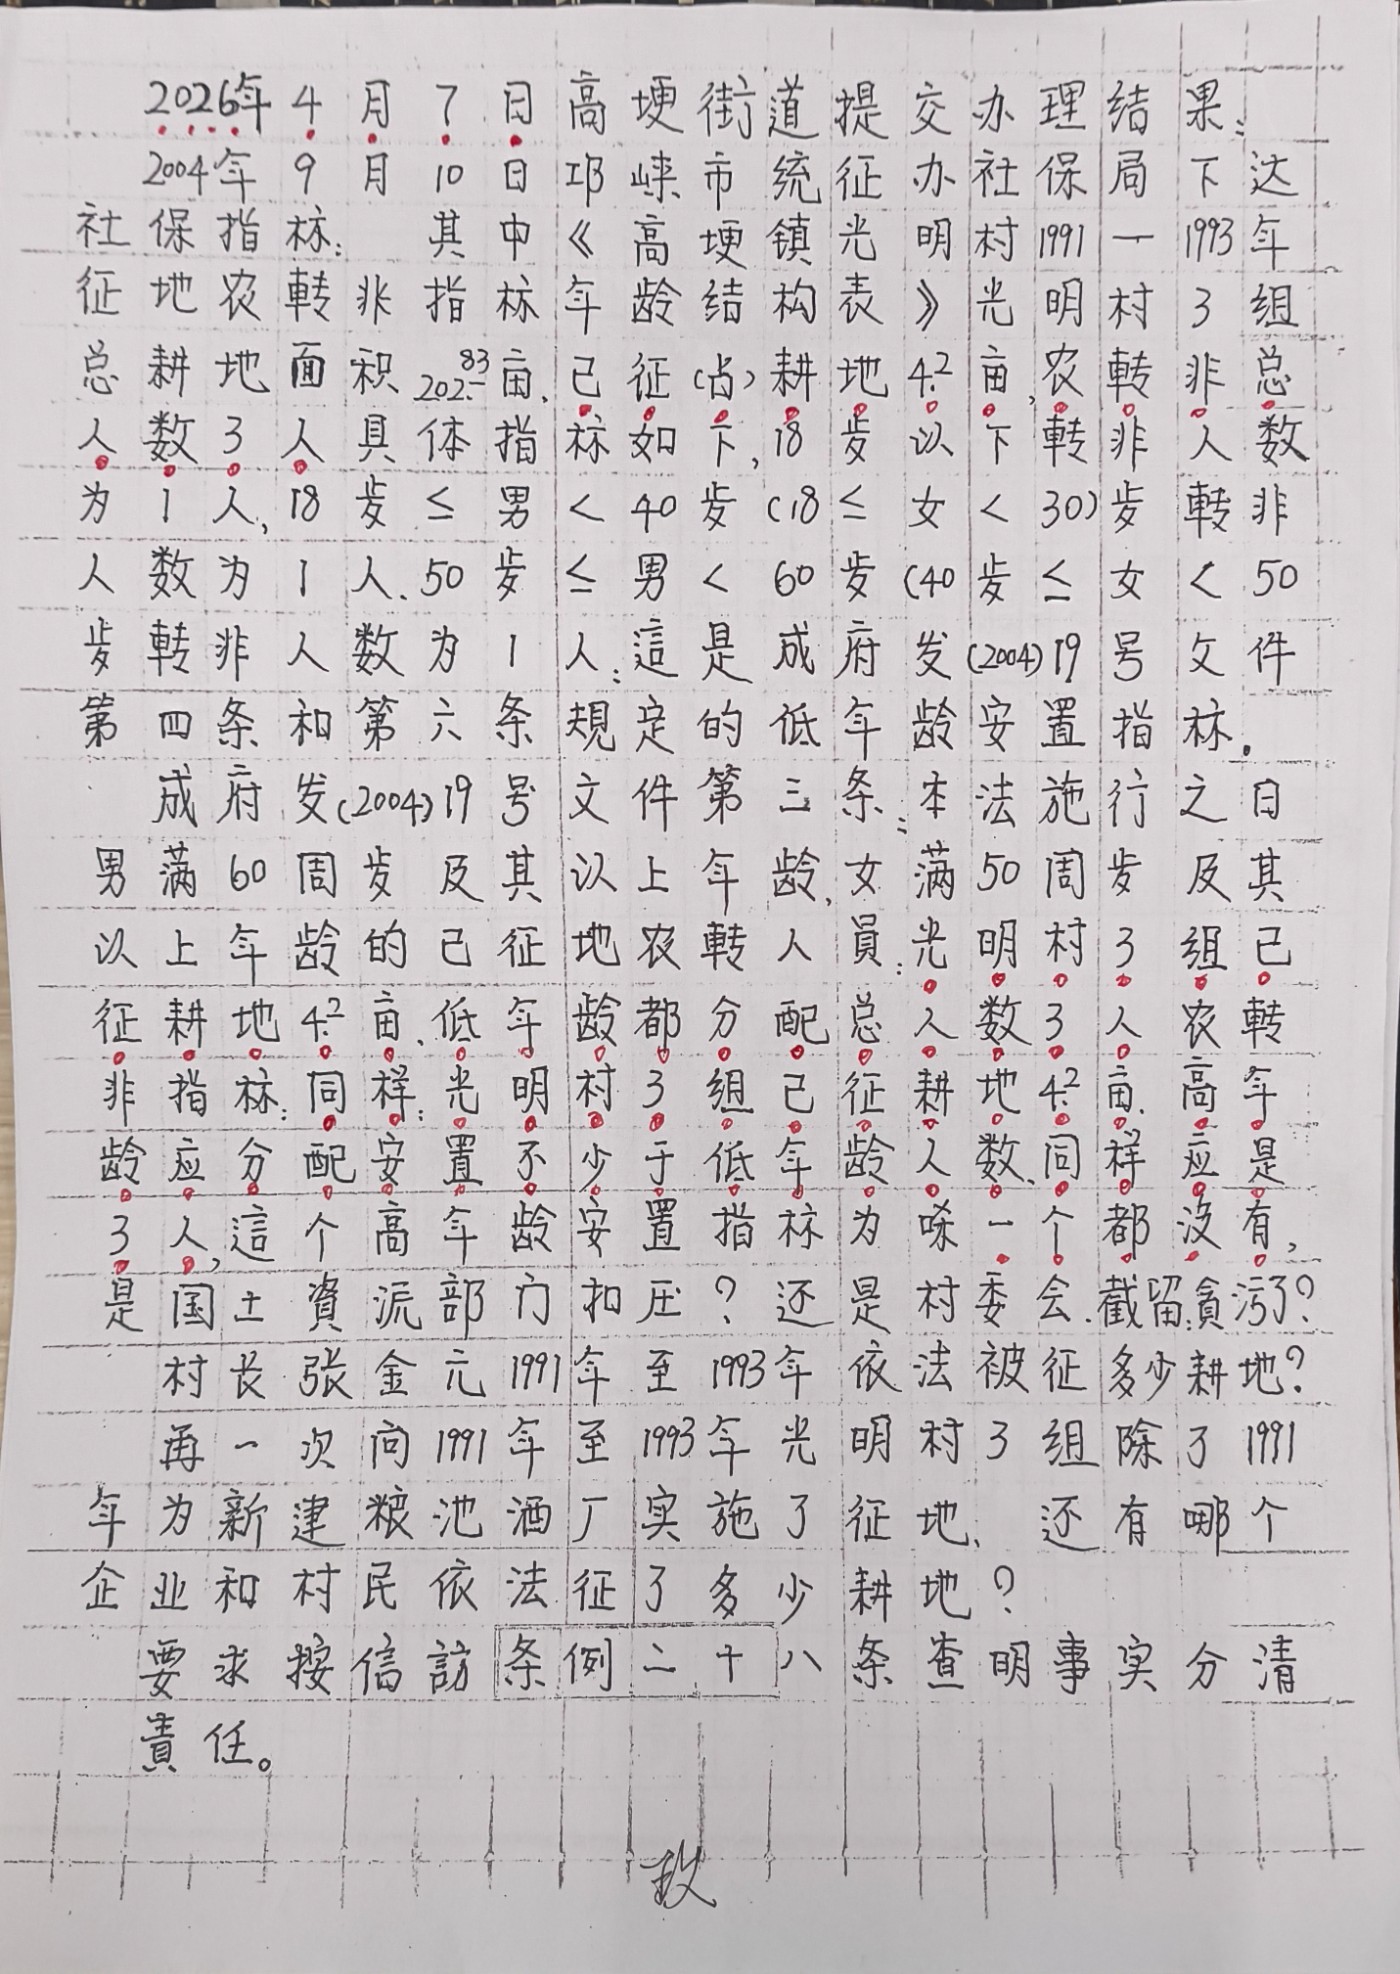 2026年4月7日高埂街道提交办理结果:
2004年9月10日邛崃市统征办社保局下达
社保指标:其中《高埂镇光明村1991一1993年
征地农轉非指标年龄结构表》光明村3组
总耕地面积202.83亩、已征(占)耕地4.2亩,农轉非总
人数3人具体指标如下,18岁以下轉非人数
为1人,18岁≤男<40岁(18≤女<30)岁轉非
人数为1人.50岁≤男<60岁(40岁≤女<50
岁轉非人数为1人:這是成府发(2004)19号文件
第四条和第六条規定的低年龄安置指标.
成府发(2004)19号文件第三条:本法施行之日
男满60周岁及其以上年龄,女满50周岁及其
以上年龄的已征地农轉人員:光明村3组已
征耕地4.2亩、低年龄都分配总人数3人农轉
非指标:同样:光明村3组已征耕地4.2亩、高年
龄应分配安置不少于低年龄人数、同样应是
3人,這个高年龄安置指标为啥一个都没有,
是国土資源部门扣压?还是村委会.截留:貪污了?
村长張金元1991年至1993年依法被征多少耕地?
再一次问1991年至1993年光明村3组除了1991
年为新建粮池酒厂实施了征地、还有哪个
企业和村民依法征了多少耕地?
要求按信訪条例二十八条查明事实分清
責任。